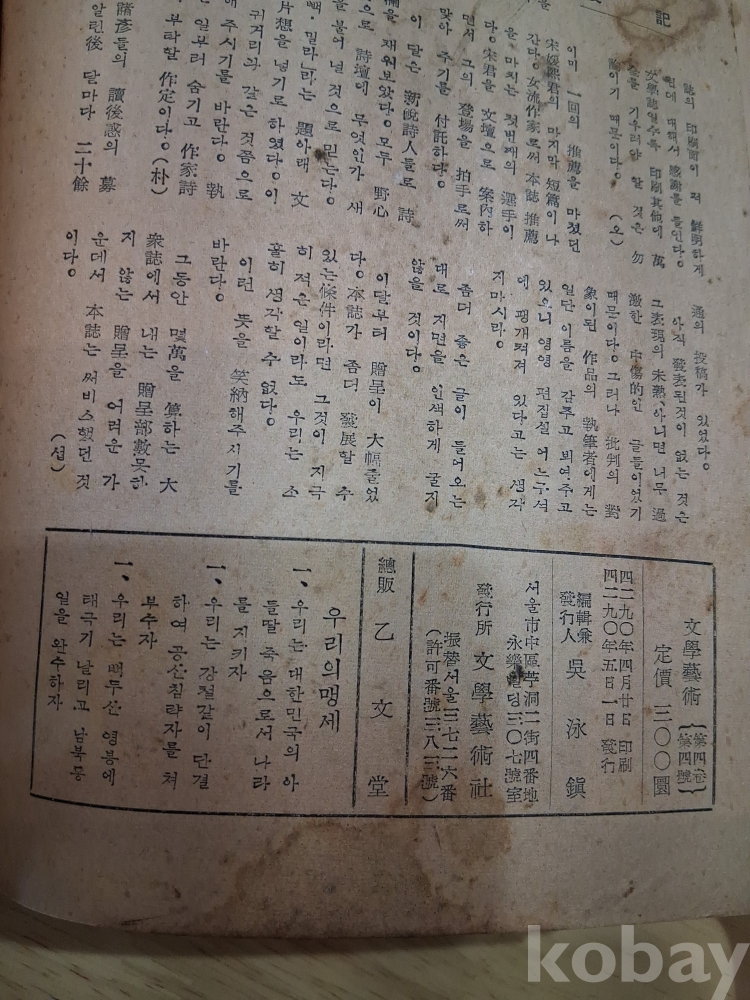 記
誌의 印刷面이 퍽 鮮明하게
된데 대해서 感謝를 들인다。
文學誌일수록 印刷其他에 萬
을 기우려야 할 것은 勿
論이기 때문이다。
(오)
이미 一回의 推薦을 마쳤던
宋媛熙君의 마지막 短篇이 나
간다。女流作家로써 本誌 推薦
을 마치는 첫번째의 選手이
다。宋君을 文壇으로 案內하
면서 그의 登場을 拍手로써
맞아 주기를 付託하다。
이 달은 新銳詩人들로 詩
欄을 채워보았다。모두 野心
으로 詩壇에 무엇인가 새
을 불어 넣을 것으로 믿는다。
빽・밀라」라는 題아래 文
片想을 넣기로 하였다。이
귀거리와 같은 것쯤으로
해 주시기를 바란다。執
은 일부러 숨기고 作家詩
부탁할 作定이다。(朴)
諸彦들의 讀後感의 募
알린後 달마다 二十餘
通의 投稿가 있었다。
아직 發表된것이 없는 것은
그表現의 未熟、아니면 너무 過
激한 中傷的인 글들이었기
때문이다。그러나 批判의 對
象이된 作品의 執筆者에게는
일단 이름을 감추고 띄여주고
있으니 영영 편집실 어느구석
에 팽개쳐져 있다고는 생각
지마시라。
좀더 좋은 글이 들어오는
대로 지면을 인색하게 굴지
않을 것이다。
이달부터 贈呈이 大幅줄었
다。本誌가 좀더 發展할 수
있는條件이라면 그것이 지극
히 적은 일이라도 우리는 소
홀히 생각할 수 없다。
이런 뜻을 笑納해주시기를
바란다。
그동안 몇萬을 算하는 大
衆誌에서 내는 贈呈部數못한
지 않는 贈呈을 어려운 가
운데서 本誌는 써비스했던 것
이다。
(섭)
文學藝術 (第四卷 第四號)
定價 三〇〇圜
四二九〇年四月廿日 印刷
四二九〇年五月一日 發行
編輯兼
發行人 吳泳鎭
서울市中區苧洞二街四番地
永樂삘딩三〇七號室
發行所 文學藝術社
振替서울三七二六番
(許可番號三八三號)
總販 乙文堂
우리의맹세
一、우리는 대한민국의 아
들딸 죽음으로서 나라
를 지키자
一、우리는 강철같이 단결
하여 공산침략자를 쳐
부수자
一、우리는 백두산 영봉에
태극기 날리고 남북통
일을 완수하자
kobay